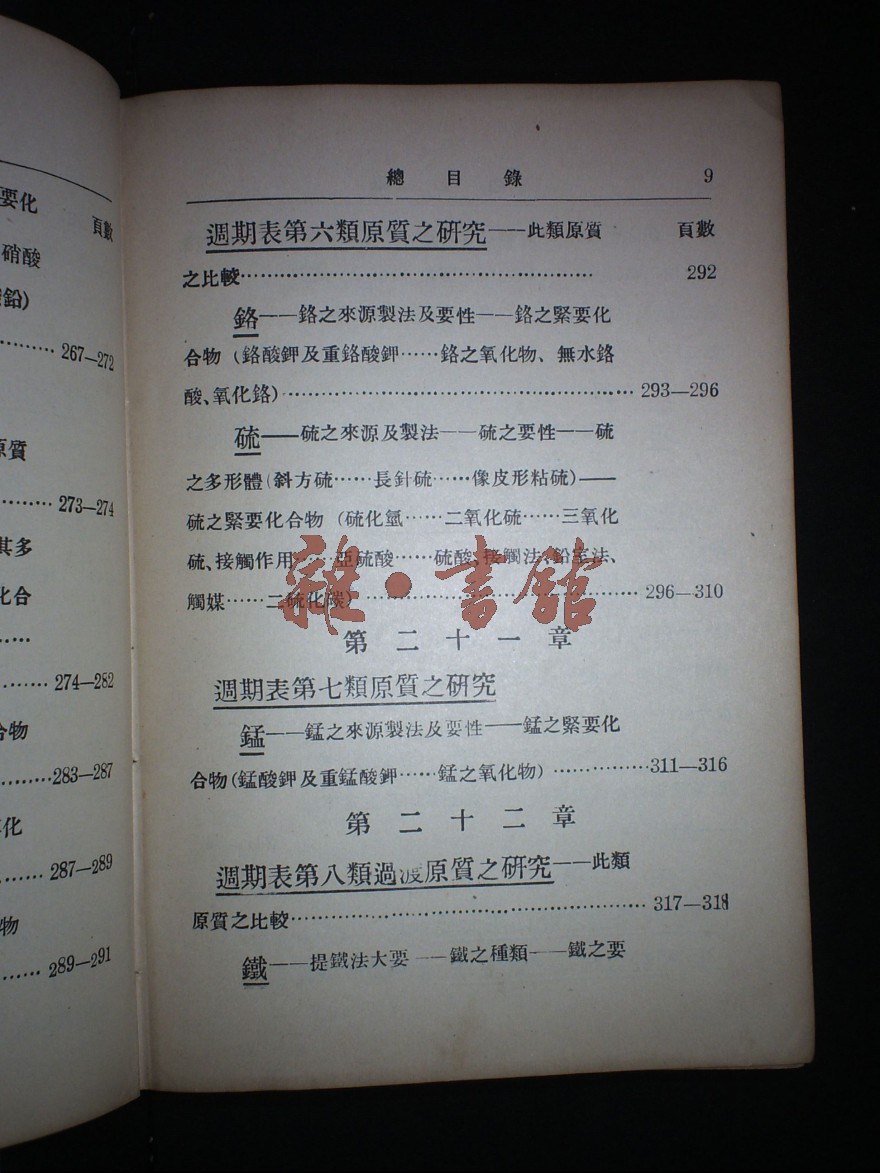 要化
頁數
硝酸
鉛)
267—272
原質
273—274
其多
化合
274—282
合物
283—287
化
287—289
物
289—291
總目錄 9
週期表第六類原質之研究——此類原質 頁數
之比較…………………………………………………… 292
鉻——鉻之來源製法及要性——鉻之緊要化
合物(鉻酸鉀及重鉻酸鉀……鉻之氧化物、無水鉻
酸、氧化鉻)…………………………………………………293—296
硫——硫之來源及製法——硫之要性——硫
之多形體(斜方硫……長針硫……像皮形粘硫)——
硫之緊要化合物(硫化氫……二氧化硫……三氧化
硫、接觸作用……亞硫酸……硫酸、接觸法、鉛室法、
觸媒……二硫化碳)………………………………………296—310
雜·書館
第二十一章
週期表第七類原質之研究
錳——錳之來源製法及要性——錳之緊要化
合物(錳酸鉀及重錳酸鉀……錳之氧化物)……………311—316
第二十二章
週期表第八類過渡原質之研究——此類
原質之比較…………………………………………………317—318
鐵——提鐵法大要——鐵之種類——鐵之要